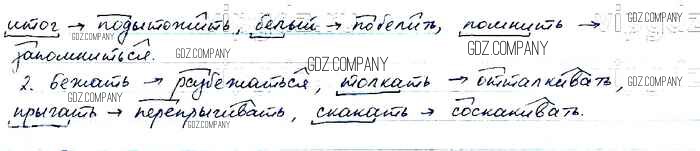 итог → подытожить, белый → побелить, помнить →
GDZ.COMPANY
запомниться.
GDZ.COMPANY
GDZ.COMPANY
2. бежать → разбежаться, толкать → отталкивать,
GDZ.COMPANY
GDZ.COMPANY
GDZ.COMPANY
прыгать → перепрыгивать, скакать → соскакивать.
GDZ.COMPANY